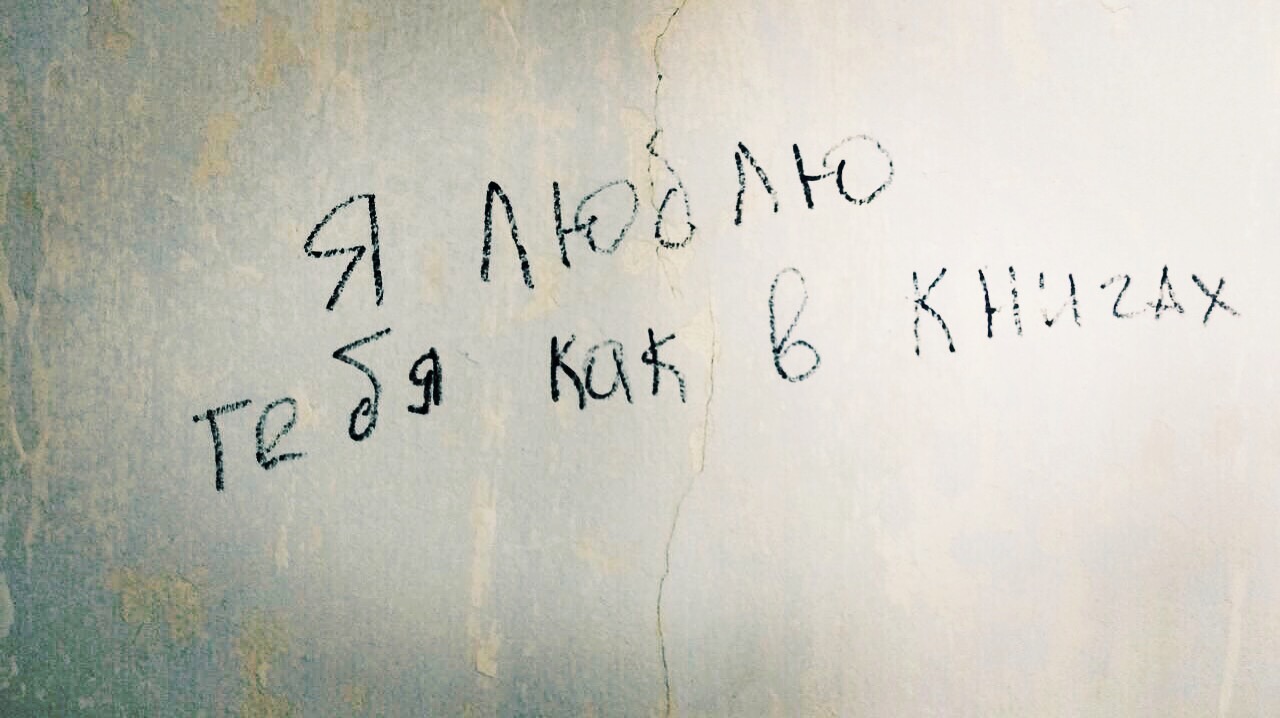 Я люблю
тебя как в книгах